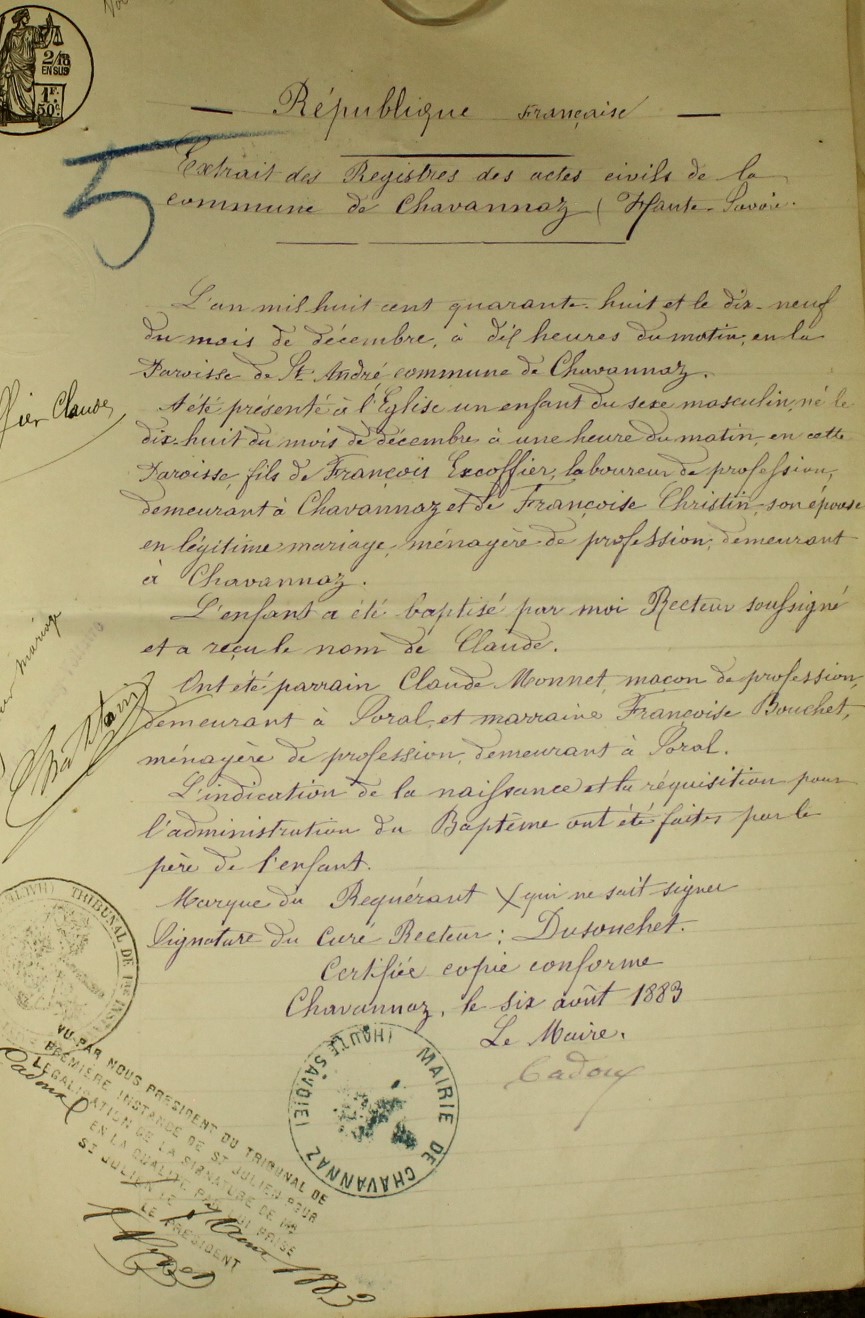 2/10
EN SUS
1F.
50c.
5
République Française
Extrait des Registres des actes civils de la
commune de Chavannaz (Haute-Savoie.
L'an mil huit cent quarante-huit et le dix-neuf
du mois de décembre, à dix heures du matin, en la
Paroisse de St. André commune de Chavannaz.
A été présenté à l'Eglise un enfant du sexe masculin, né le
dix-huit du mois de décembre à une heure du matin, en cette
Paroisse, fils de François Excoffier, laboureur de profession,
demeurant à Chavannaz et de Françoise Christin, son épouse
en légitime mariage, ménagère de profession, demeurant
à Chavannaz.
L'enfant a été baptisé par moi Recteur soussigné
et a reçu le nom de Claude.
Ont été parrain Claude Monnet, maçon de profession,
demeurant à Poral, et marraine Françoise Bouchet,
ménagère de profession, demeurant à Poral.
L'indication de la naissance et la réquisition pour
l'administration du Baptême ont été faites par le
père de l'enfant.
Marque du Requérant X qui ne sait signer
Signature du Curé Recteur: Dusonchet.
Certifiée copie conforme
Chavannaz, le six août 1883
Le Maire.
Cadoux
ffier Claude
mariage
TRIBUNAL DE 1ère INST
VU PAR NOUS PRESIDENT DU TRIBUNAL DE
PREMIÈRE INSTANCE DE ST JULIEN POUR
LEGALISATION DE LA SIGNATURE DE Mr
Cadoux
EN LA QUALITE PAR LUI PRISE
ST JULIEN LE 7 Août 1883
LE PRESIDENT
MAIRIE DE CHAVANNAZ (HAUTE SAVOIE)